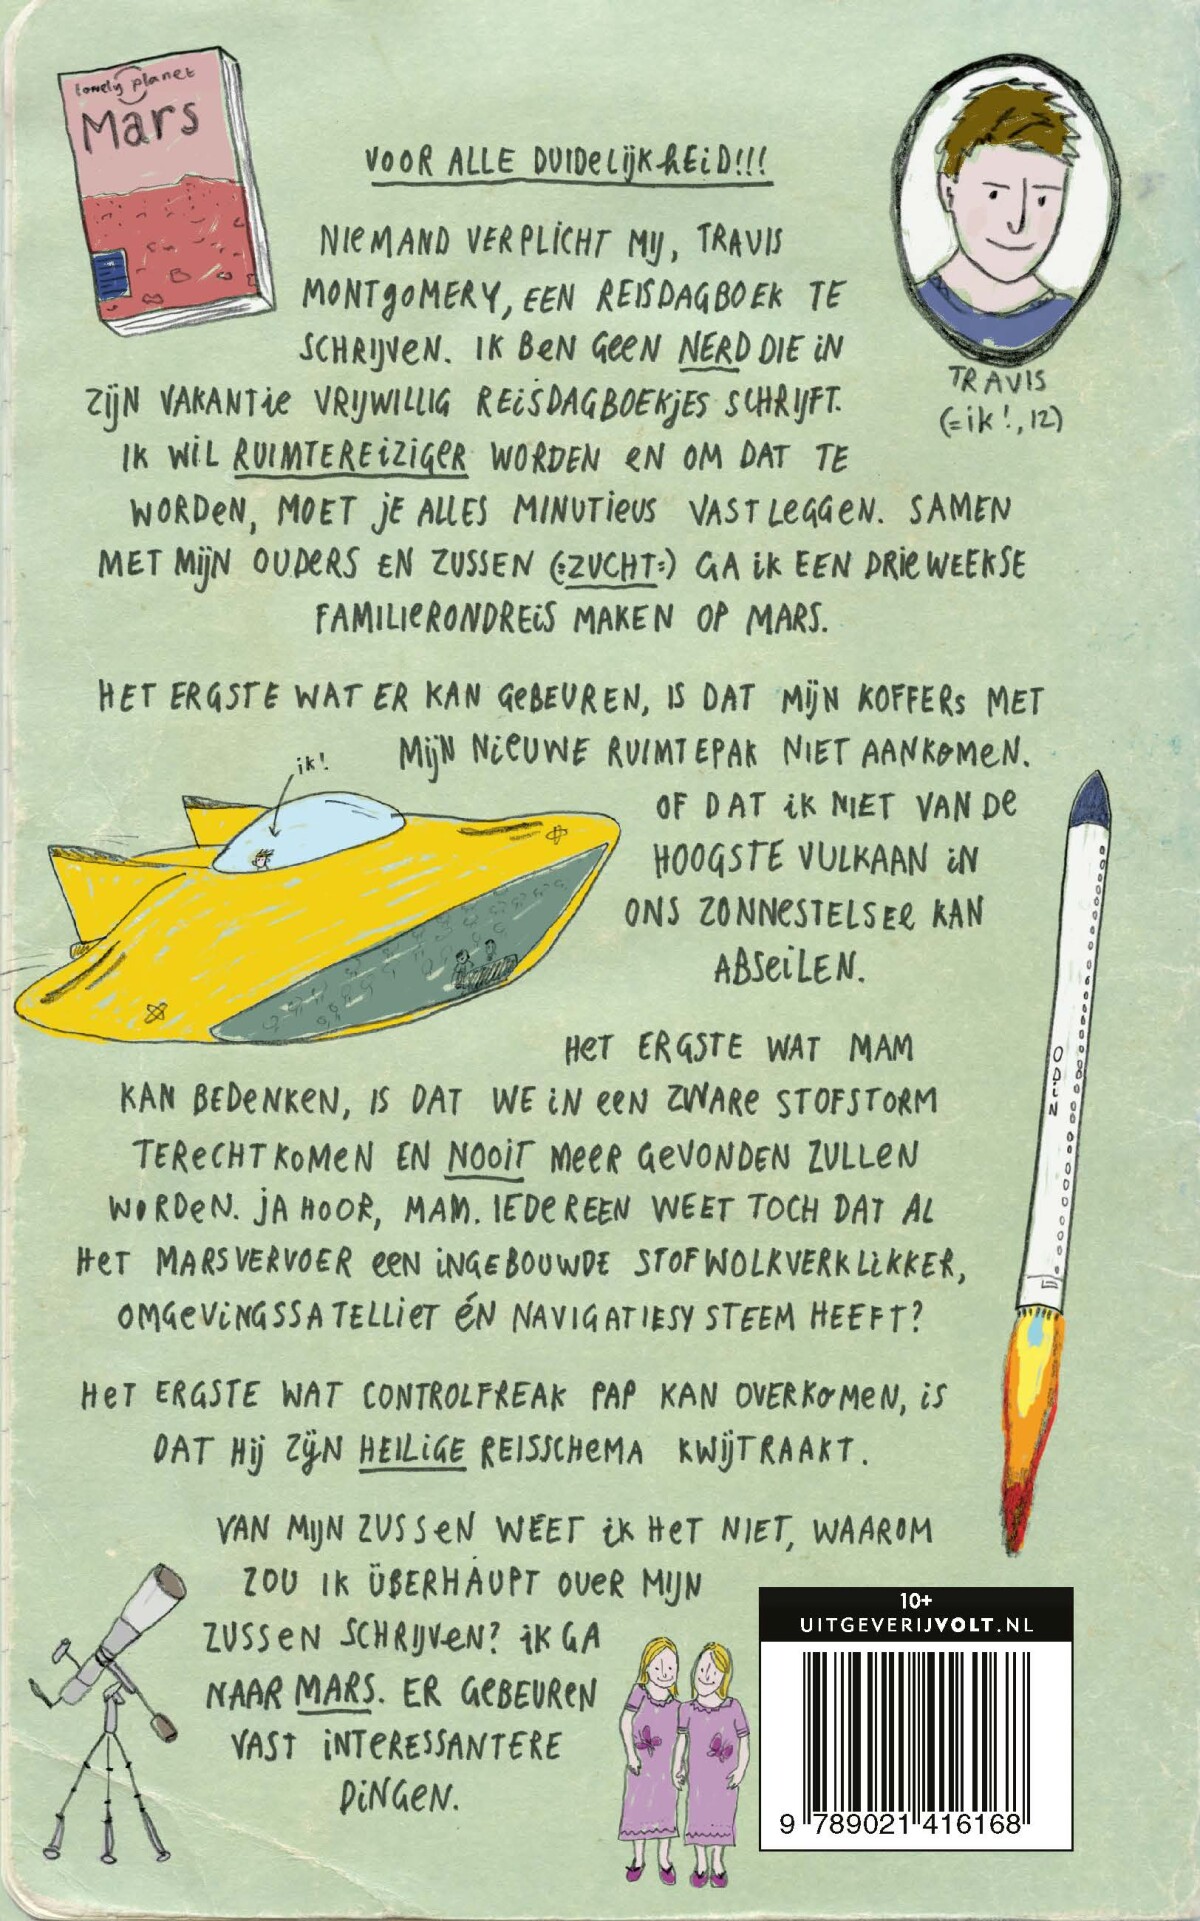 lonely planet
Mars
VOOR ALLE DUIDELIJKHEID!!!
NIEMAND VERPLICHT MIJ, TRAVIS
MONTGOMERY, EEN REISDAGBOEK TE
SCHRIJVEN. IK BEN GEEN NERD DIE IN
ZIJN VAKANTIE VRIJWILLIG REISDAGBOEKJES SCHRIJFT.
IK WIL RUIMTEREIZIGER WORDEN EN OM DAT TE
WORDEN, MOET JE ALLES MINUTIEUS VASTLEGGEN. SAMEN
MET MIJN OUDERS EN ZUSSEN (=ZUCHT=) GA IK EEN DRIEWEEKSE
FAMILIERONDREIS MAKEN OP MARS.
TRAVIS
(=ik!, 12)
HET ERGSTE WAT ER KAN GEBEUREN, IS DAT MIJN KOFFERS MET
MIJN NIEUWE RUIMTEPAK NIET AANKOMEN.
ik!
OF DAT IK NIET VAN DE
HOOGSTE VULKAAN IN
ONS ZONNESTELSEL KAN
ABSEILEN.
ODIN
HET ERGSTE WAT MAM
KAN BEDENKEN, IS DAT WE IN EEN ZWARE STOFSTORM
TERECHTKOMEN EN NOOIT MEER GEVONDEN ZULLEN
WORDEN. JA HOOR, MAM. IEDEREEN WEET TOCH DAT AL
HET MARSVERVOER EEN INGEBOUWDE STOFWOLKVERKLIKKER,
OMGEVINGSSATELLIET ÉN NAVIGATIESYSTEEM HEEFT?
HET ERGSTE WAT CONTROLFREAK PAP KAN OVERKOMEN, IS
DAT HIJ ZIJN HEILIGE REISSCHEMA KWIJTRAAKT.
VAN MIJN ZUSSEN WEET IK HET NIET, WAAROM
ZOU IK ÜBERHAUPT OVER MIJN
ZUSSEN SCHRIJVEN? IK GA
NAAR MARS. ER GEBEUREN
VAST INTERESSANTERE
DINGEN.
10+
UITGEVERIJVOLT.NL
9 789021 416168